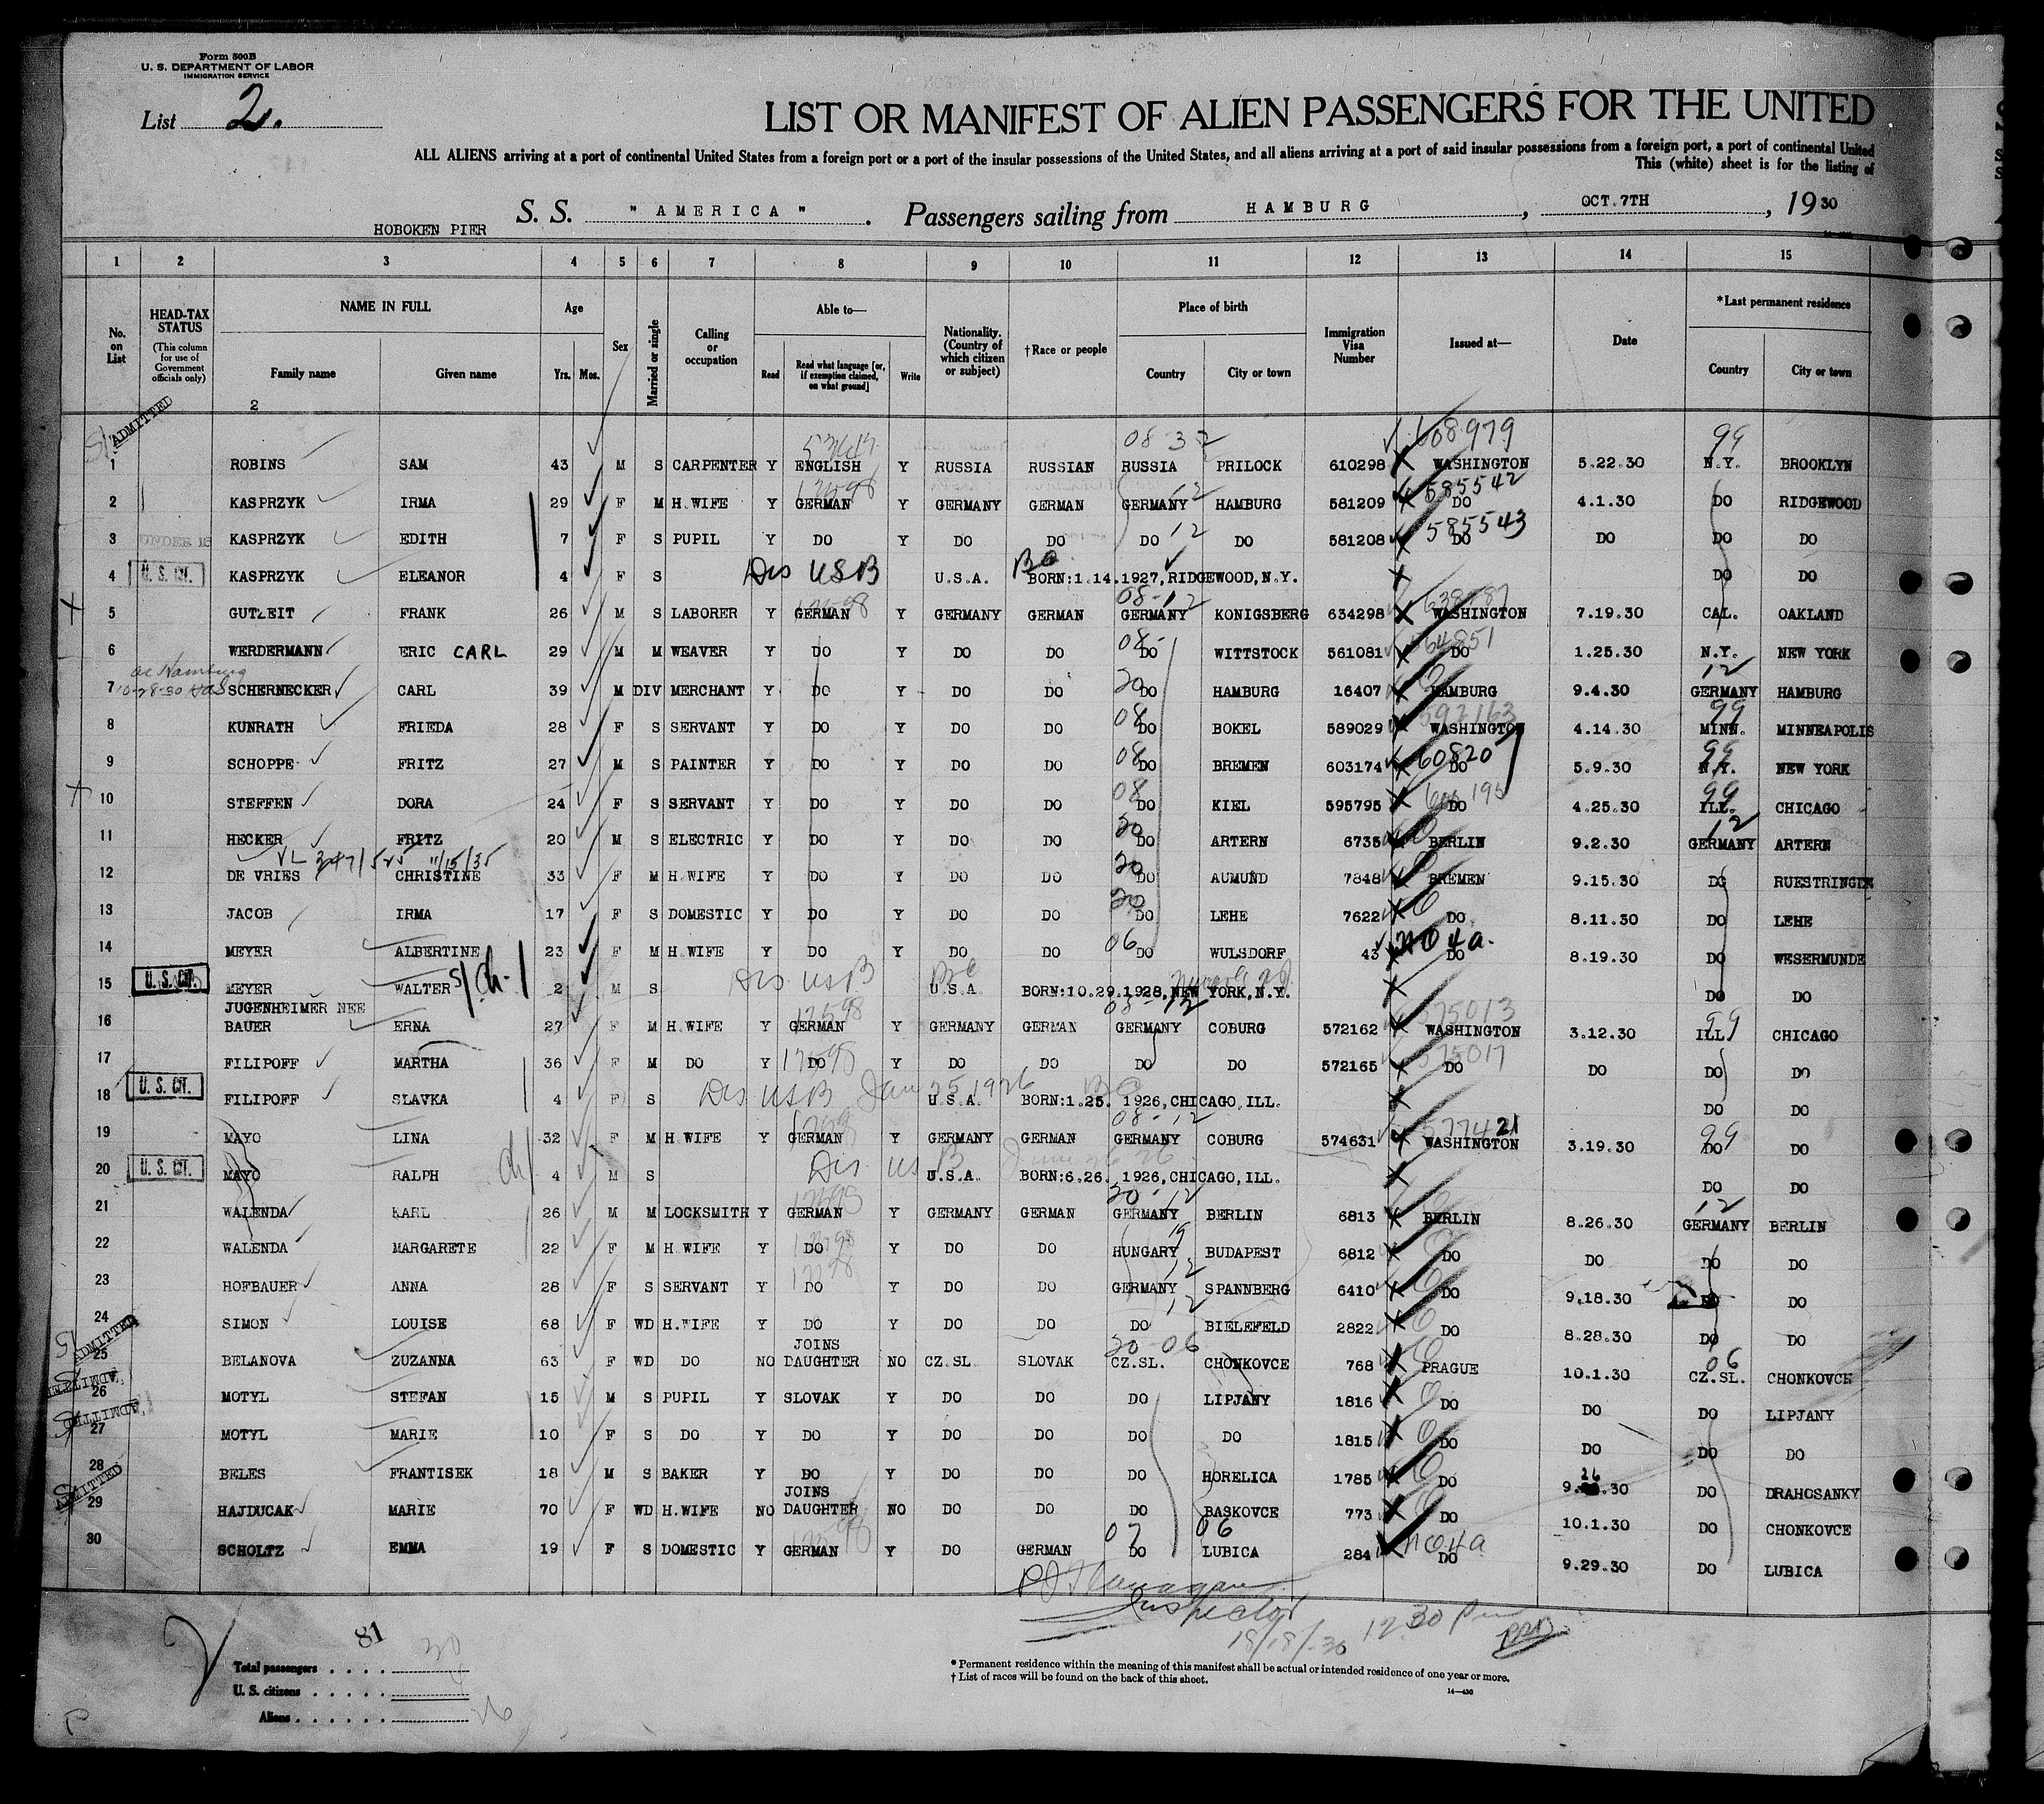 Form 500B
U. S. DEPARTMENT OF LABOR
IMMIGRATION SERVICE
List 2.
LIST OR MANIFEST OF ALIEN PASSENGERS FOR THE UNITED
ALL ALIENS arriving at a port of continental United States from a foreign port or a port of the insular possessions of the United States, and all aliens arriving at a port of said insular possessions from a foreign port, a port of continental United
This (white) sheet is for the listing of
S. S. " AMERICA " . Passengers sailing from HAMBURG , OCT.7TH , 19 30
HOBOKEN PIER
1 2 3 4 5 6 7 8 9 10 11 12 13 14 15
No. on List
HEAD-TAX STATUS (This column for use of Government officials only)
NAME IN FULL
Family name Given name
Age Yrs. Mos.
Sex
Married or single
Calling or occupation
Able to— Read Read what language [or, if exemption claimed, on what ground] Write
Nationality. (Country of which citizen or subject)
†Race or people
Place of birth Country City or town
Immigration Visa Number
Issued at—
Date
*Last permanent residence Country City or town
2
ADMITTED 08-32 608979 99
1 ROBINS SAM 43 M S CARPENTER Y ENGLISH Y RUSSIA RUSSIAN RUSSIA PRILOCK 610298 WASHINGTON 5.22.30 N.Y. BROOKLYN
585542
2 KASPRZYK IRMA 29 F M H.WIFE Y GERMAN Y GERMANY GERMAN GERMANY 12 HAMBURG 581209 DO 4.1.30 DO RIDGEWOOD
585543
3 UNDER 16 KASPRZYK EDITH 7 F S PUPIL Y DO Y DO DO DO 12 DO 581208 DO DO DO DO
4 U. S. CIT. KASPRZYK ELEANOR 4 F S Dis USB U.S.A. BORN:1.14.1927,RIDGEWOOD,N.Y. DO DO
08-12
5 GUTZEIT FRANK 26 M S LABORER Y GERMAN Y GERMANY GERMAN GERMANY KONIGSBERG 634298 WASHINGTON 7.19.30 CAL. OAKLAND
564851
6 WERDERMANN ERIC CARL 29 M M WEAVER Y DO Y DO DO 08- DO WITTSTOCK 561081 DO 1.25.30 N.Y. NEW YORK
12
7 SCHERNECKER CARL 39 M DIV MERCHANT Y DO Y DO DO 20 DO HAMBURG 16407 HAMBURG 9.4.30 GERMANY HAMBURG
592163 99
8 KUNRATH FRIEDA 28 F S SERVANT Y DO Y DO DO 08 DO BOKEL 589029 WASHINGTON 4.14.30 MINN. MINNEAPOLIS
99
9 SCHOPPE FRITZ 27 M S PAINTER Y DO Y DO DO 08 DO BREMEN 603174 DO 5.9.30 N.Y. NEW YORK
99
10 STEFFEN DORA 24 F S SERVANT Y DO Y DO DO 08 DO KIEL 595795 DO 4.25.30 ILL. CHICAGO
12
11 HECKER FRITZ 20 M S ELECTRIC Y DO Y DO DO 20 DO ARTERN 6735 BERLIN 9.2.30 GERMANY ARTERN
11/15/35
12 DE VRIES CHRISTINE 33 F M H.WIFE Y DO Y DO DO 20 DO AUMUND 7848 BREMEN 9.15.30 DO RUESTRINGEN
13 JACOB IRMA 17 F S DOMESTIC Y DO Y DO DO 20 DO LEHE 7622 DO 8.11.30 DO LEHE
14 MEYER ALBERTINE 23 F M H.WIFE Y DO Y DO DO 06 DO WULSDORF 43 DO 8.19.30 DO WESERMUNDE
15 U. S. CIT. MEYER WALTER 2 M S Dis USB U.S.A BORN:10.29.1928,NEW YORK,N.Y. DO DO
JUGENHEIMER NEE
575013
16 BAUER ERNA 27 F M H.WIFE Y GERMAN Y GERMANY GERMAN GERMANY COBURG 572162 WASHINGTON 3.12.30 ILL CHICAGO
575017
17 FILIPOFF MARTHA 36 F M DO Y DO Y DO DO DO DO 572165 DO DO DO DO
Dis USB Jan 25 1926
18 U. S. CIT. FILIPOFF SLAVKA 4 F S U.S.A. BORN:1.25. 1926,CHICAGO,ILL. DO DO
08-12
19 MAYO LINA 32 F M H WIFE Y GERMAN Y GERMANY GERMAN GERMANY COBURG 574631 WASHINGTON 3.19.30 DO DO
Dis. US B June 26 26
20 U. S. CIT. MAYO RALPH 4 M S U.S.A. BORN:6.26. 1926,CHICAGO,ILL. DO DO
20-12 12
21 WALENDA KARL 26 M M LOCKSMITH Y GERMAN Y GERMANY GERMAN GERMANY BERLIN 6813 BERLIN 8.26.30 GERMANY BERLIN
22 WALENDA MARGARETE 22 F M H.WIFE Y DO Y DO DO HUNGARY 19 BUDAPEST 6812 DO DO DO DO
12
23 HOFBAUER ANNA 28 F S SERVANT Y DO Y DO DO GERMANY SPANNBERG 6410 DO 9.18.30 DO DO
12
24 SIMON LOUISE 68 F WD H.WIFE Y DO Y DO DO DO BIELEFELD 2822 DO 8.28.30 DO DO
ADMITTED JOINS 20-06 06
25 BELANOVA ZUZANNA 63 F WD DO NO DAUGHTER NO CZ.SL SLOVAK CZ.SL. CHONKOVCE 768 PRAGUE 10.1.30 CZ.SL. CHONKOVCE
ADMITTED
26 MOTYL STEFAN 15 M S PUPIL Y SLOVAK Y DO DO DO LIPJANY 1816 DO DO DO LIPJANY
ADMITTED
27 MOTYL MARIE 10 F S DO Y DO Y DO DO DO DO 1815 DO DO DO DO
28 BELES FRANTISEK 18 M S BAKER Y DO Y DO DO DO HORELICA 1785 DO 9.26.30 DO DRAHOSANKY
ADMITTED JOINS
29 HAJDUCAK MARIE 70 F WD H.WIFE NO DAUGHTER NO DO DO DO BASKOVCE 773 DO 10.1.30 DO CHONKOVCE
07 06
30 SCHOLTZ EMMA 19 F S DOMESTIC Y GERMAN Y DO GERMAN DO LUBICA 284 DO 9.29.30 DO LUBICA
Inspector
12 30 Pm
81
Total passengers . . . . 30
U. S. citizens . . . . .
Aliens . . . . . . 26
* Permanent residence within the meaning of this manifest shall be actual or intended residence of one year or more.
† List of races will be found on the back of this sheet.
14—430